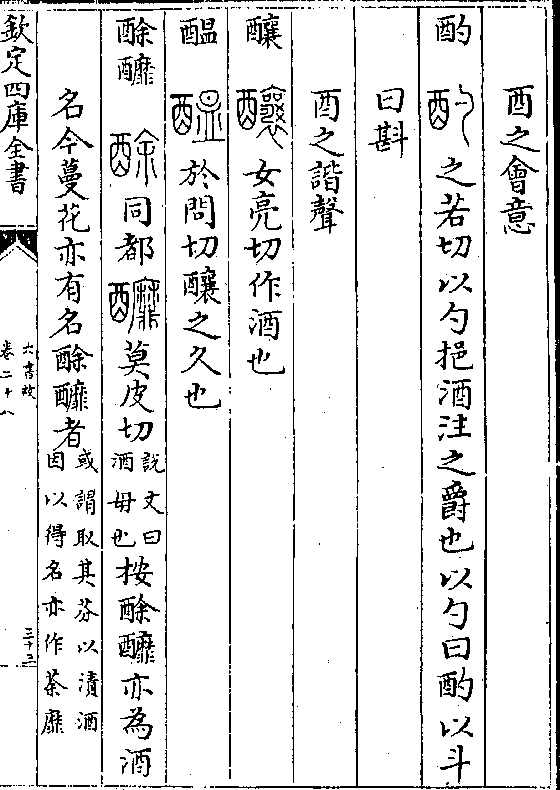 酉之會意
酌 酌 之若切以勺挹酒注之爵也以勺曰酌以斗
曰斟
酉之諧聲
釀 釀 女亮切作酒也
醖 醖 於問切釀之久也
酴醿 酴 同都 醿 莫皮切 說文曰酒母也 按酴醿亦為酒
名今蔓花亦有名酴醿者 或謂取其芬以漬酒因以得名亦作荼靡
欽定四庫全書
六書故
卷二十八
三十三